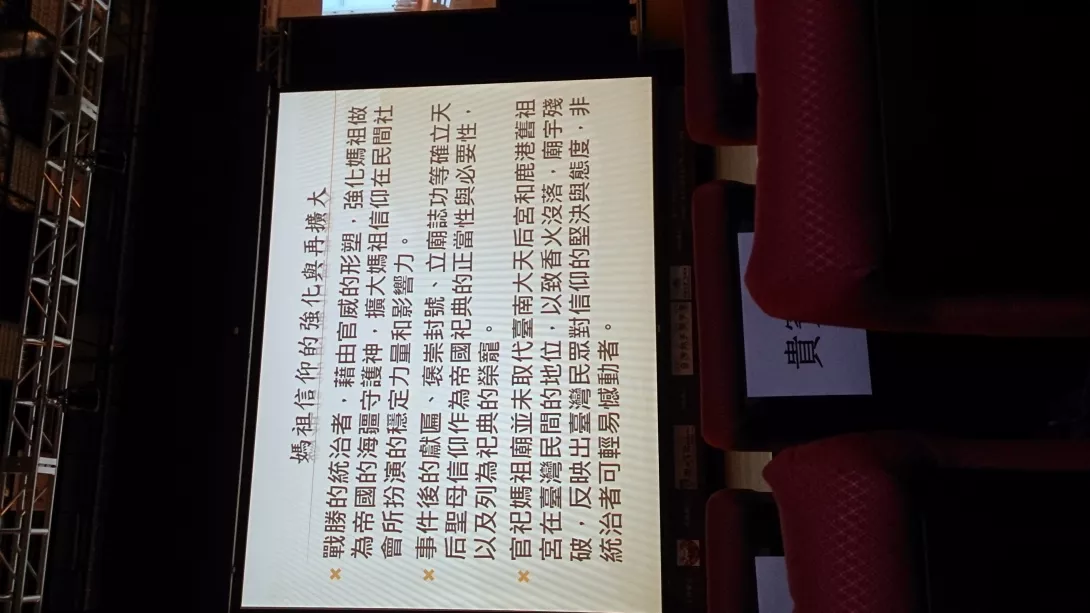 媽祖信仰的強化與再擴大
戰勝的統治者，藉由官威的形塑，強化媽祖做
為帝國的海疆守護神，擴大媽祖信仰在民間社
會所扮演的穩定力量和影響力。
事件後的獻匾、褒崇封號、立廟誌功等確立天
后聖母信仰作為帝國祀典的正當性與必要性，
以及列為祀典的榮寵。
官祀媽祖廟並未取代臺南大天后宮和鹿港舊祖
宮在臺灣民間的地位，以致香火沒落，廟宇殘
破，反映出臺灣民眾對信仰的堅決與態度，非
統治者可輕易憾動者。
貴